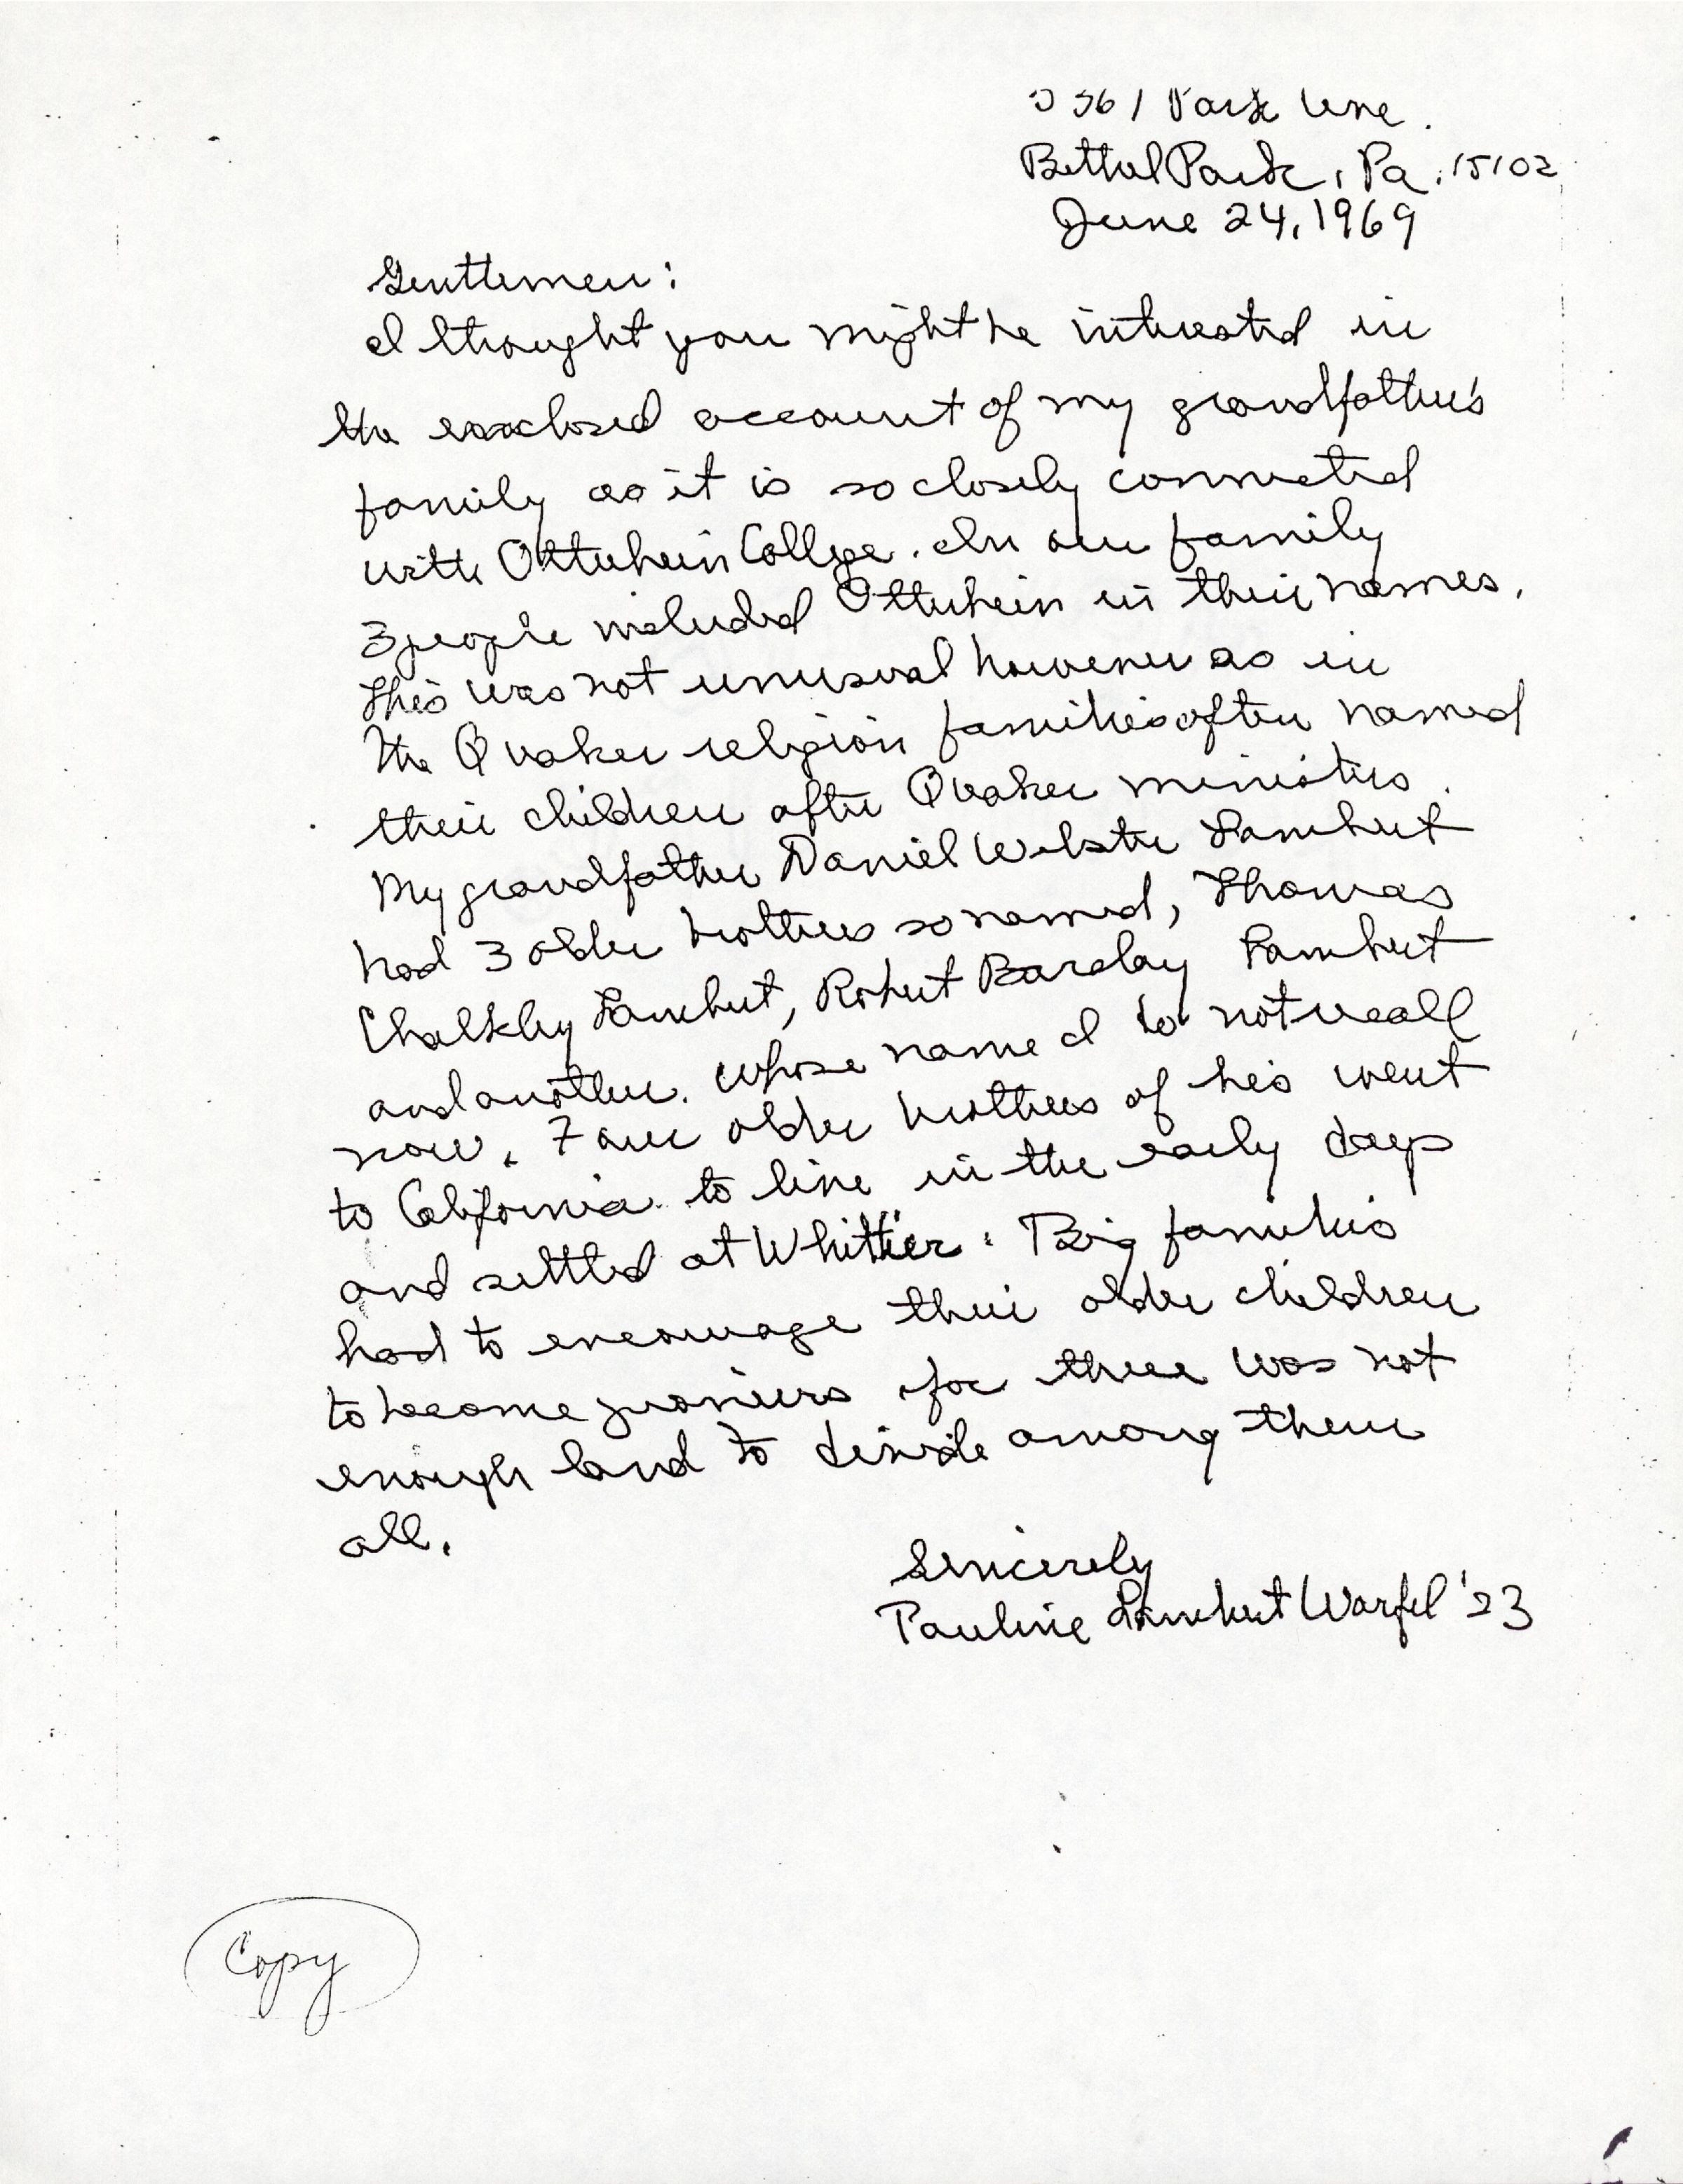 5561 Park Ave.
Bethel Park, Pa. 15102
June 24, 1969
Gentlemen:
I thought you might be interested in
the enclosed account of my grandfather's
family as it is so closely connected
with Otterbein College. In our family
3 people included Otterbein in their names.
This was not unusual however as in
the Quaker religion families often named
their children after Quaker ministers.
My grandfather Daniel Webster Lambert
had 3 older brothers so named, Thomas
Chalkley Lambert, Robert Barclay Lambert
and another. whose name I do not recall
now. Four older brothers of his went
to California to live in the early days
and settled at Whittier. Big families
had to encourage their older children
to become pioneers for there was not
enough land to divide among them
all.
Sincerely
Pauline Lambert Warfel '23
Copy